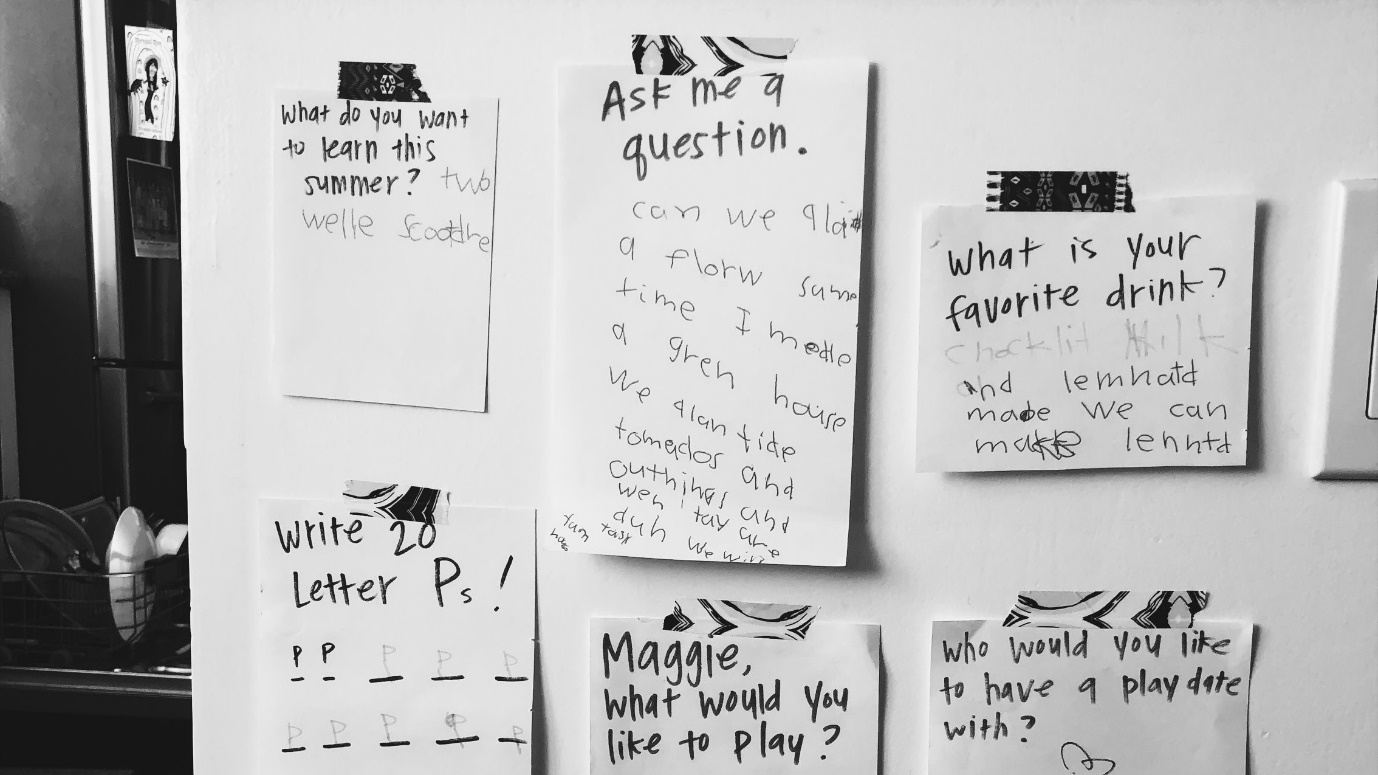 What do you want
to learn this
summer? two
welle scootdre
Ask me a
question.
can we
a florw sume
time I made
a gren house
we plan tide
tomados and
outhings and
wen tay are
duh
task we
What is your
favorite drink?
Chocklit Milk
and lemnatd
made we can
lenntd
Write 20
Letter Ps!
P P P P P
P P P P P
Maggie,
what would you
like to play?
who would you like
to have a play date
with?